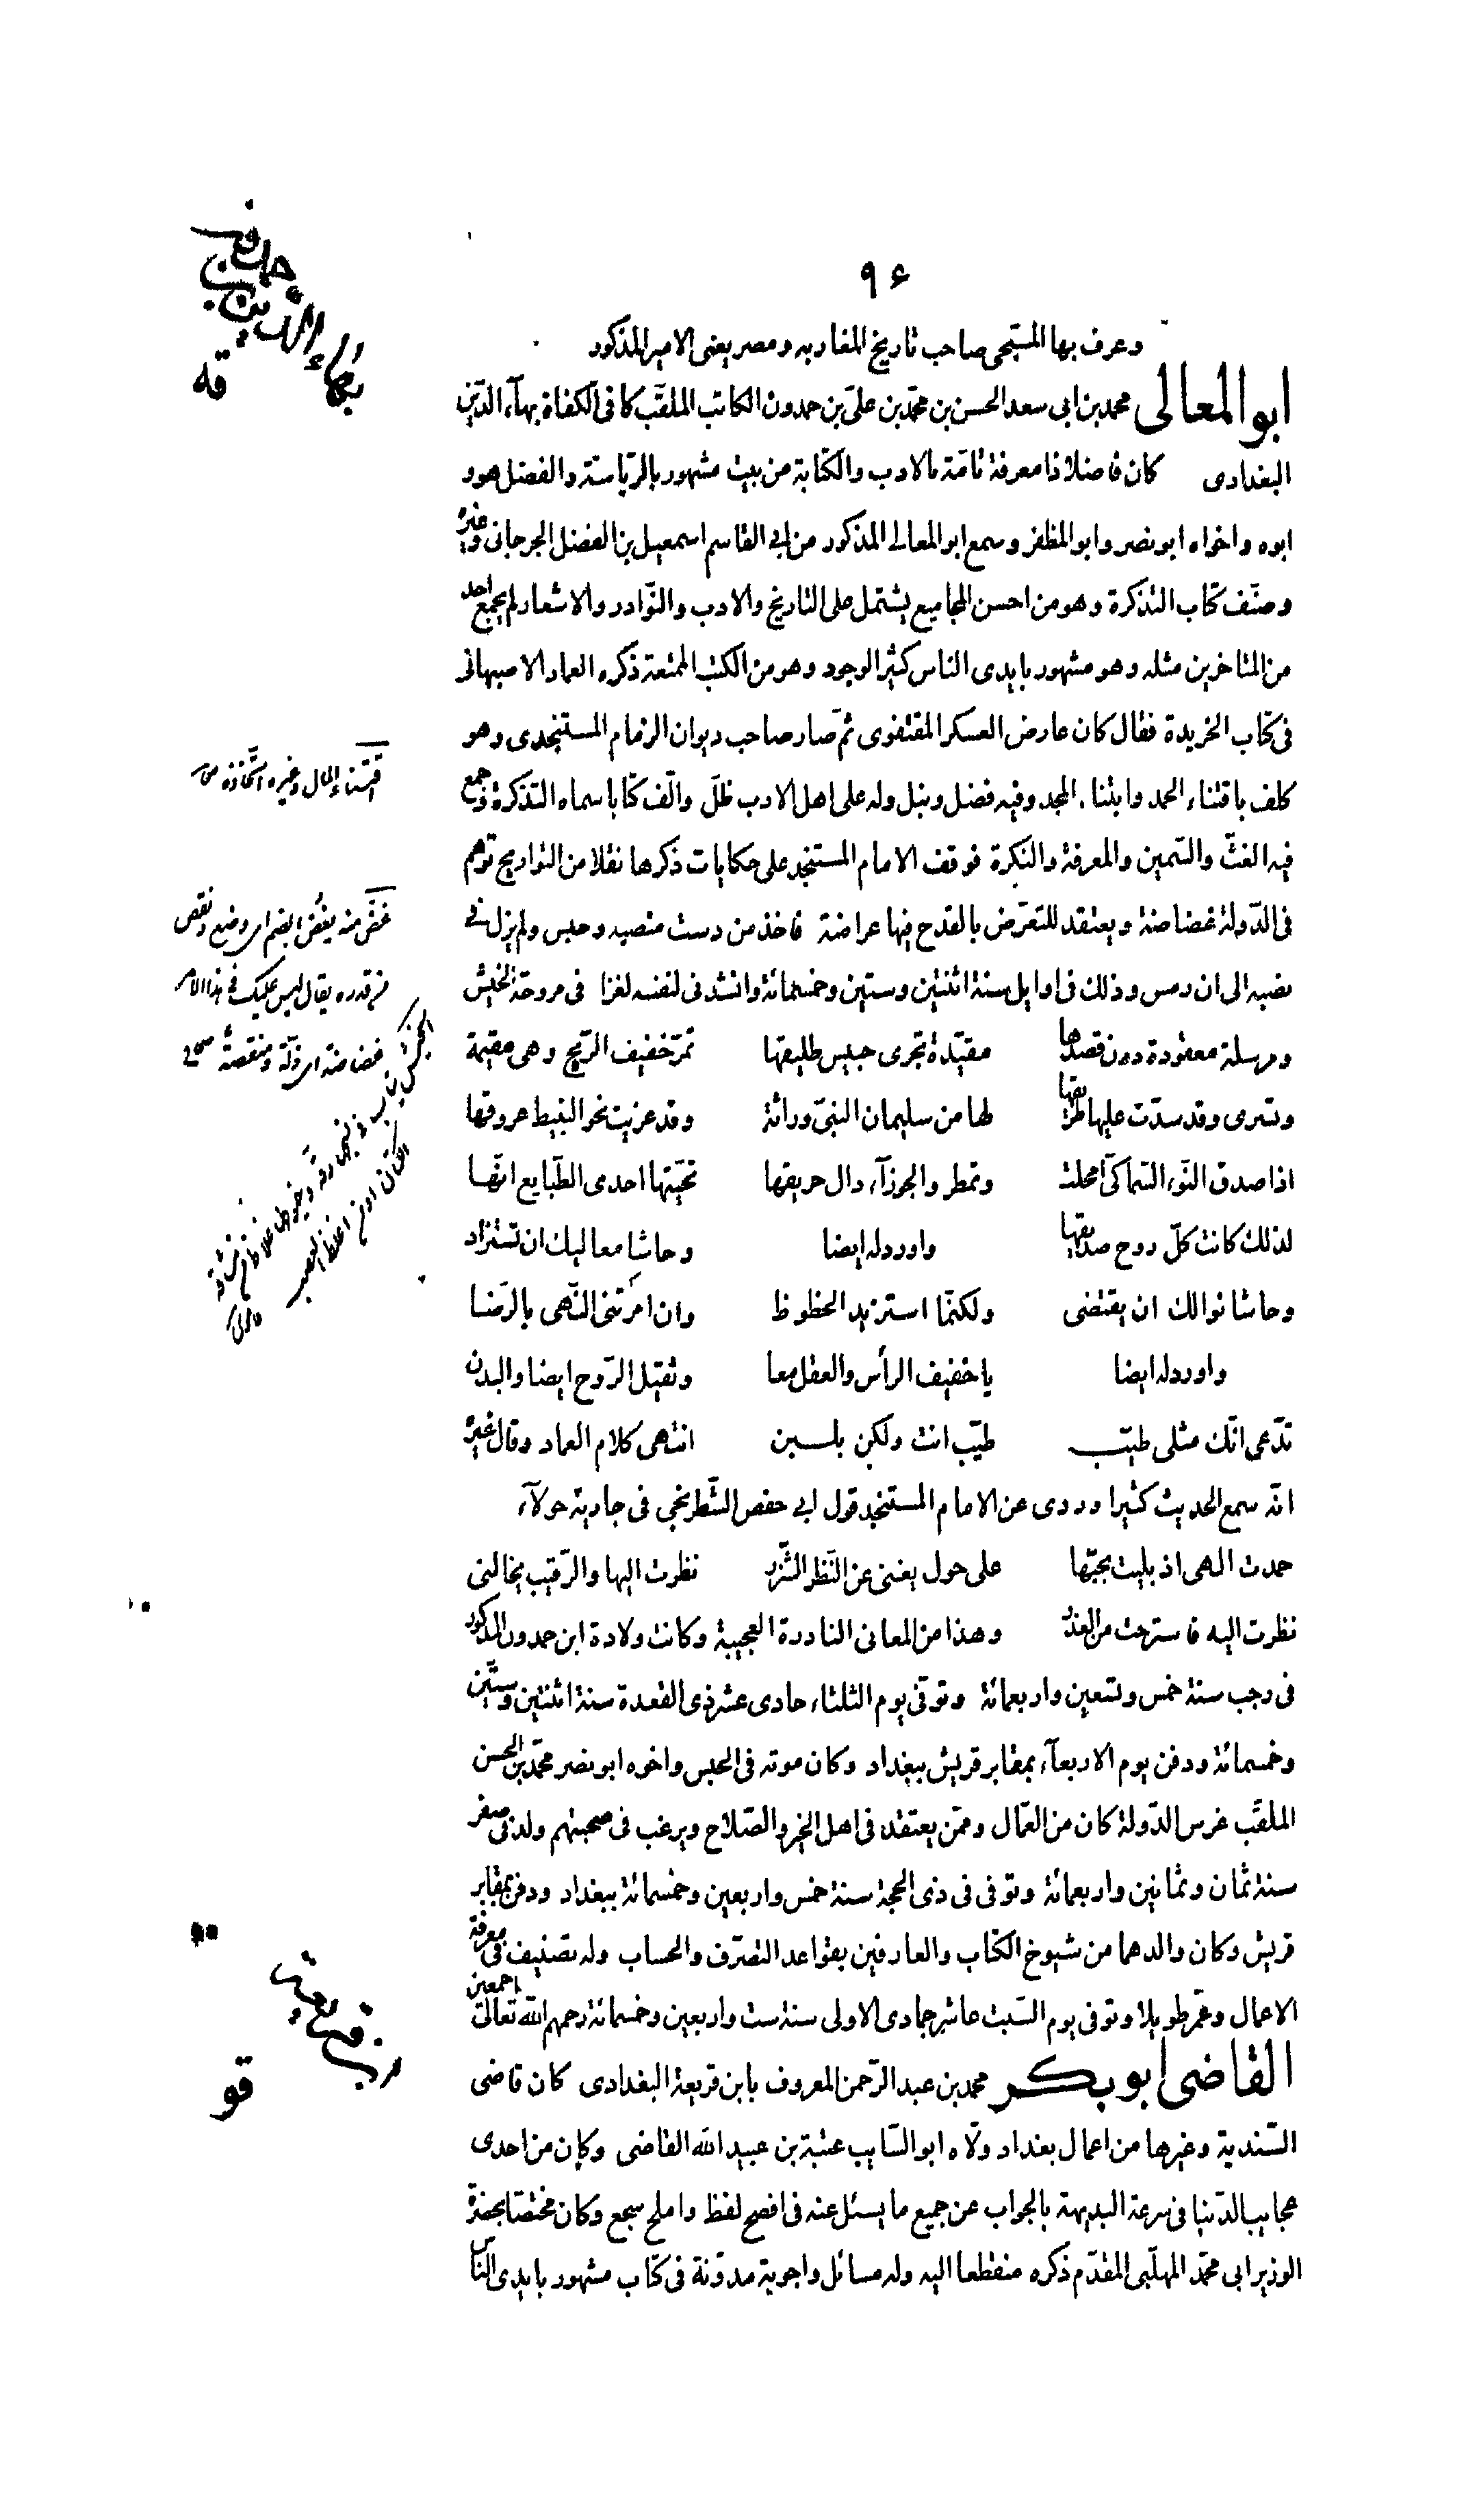 ٩٤
وعرف بها المسبّحى صاحب تاريخ المغاربه ومصر يعنى الامير المذكور
ابو المعالى محمد بن ابى سعد الحسن بن محمّد بن علىّ بن حمدون الكاتب الملقّب كافى الكفاة بهآء الدّين
البغدادى كان فاضلا ذا معرفة تامّة بالادب والكتابة من بيت مشهور بالرّياسة والفضل هو و
ابوه واخواه ابو نصر وابو المظفر وسمع ابو المعالى المذكور من ابى القاسم اسمعيل بن الفضل الجرجانى وغيره
وصنّف كتاب التذكرة وهو من احسن المجاميع يشتمل على التاريخ والادب والنّوادر والاشعار لم يجمع احد
من المتاخرين مثله وهو مشهور بايدى الناس كثير الوجود وهو من الكتب الممتعة ذكره العماد الاصبهانى
فى كتاب الخريدة فقال كان عارض العسكر المقتفوى ثمّ صار صاحب ديوان الزمام المستنجدى وهو
كلف باقتناء الحمد وابتناء المجد وفيه فضل ونبل وله على اهل الادب ظلّ والّف كتابا سماه التّذكرة وجمع
فيه الغثّ والسّمين والمعرفة والنكرة فوقف الامام المستنجد على حكايات ذكرها نقلا من التواريخ توهم
فى الدّولة غضاضة ويعتقد للتعرّض بالقدح فيها عراضة فاخذ من دست منصبه وحبس ولم يزل فى
نصبه الى ان رمس وذلك فى اوايل سنة اثنتين وستين وخمسمائة وانشدنى لنفسه لغزا فى مروحة الخيش
ومرسلة معقودة دون قصدها مقيّدة تجرى حبيس طليقها تمرّ خفيف الرّيح وهى مقيمة
وتسرى وقد سدّت عليها طريقها لها من سليمان النبىّ وراثة وقد عزيت نحو النبيط عروقها
اذا صدق النّوء السّماكىّ امحلت وتمطر والجوزآء ذال حريقها تحيّتها احدى الطّبايع انّها
لذلك كانت كلّ روح صديقها واورد له ايضا وحاشا معاليك ان تستزاد
وحاشا نوالك ان يقتضى ولكنّما استزيد الحظوظ وان امرتنى النّهى بالرّضا
واورد له ايضا يا خفيف الرأس والعقل معا وثقيل الرّوح ايضا والبدن
تدّعى انّك مثلى طيّب طيّب انت ولكن بلسن انتهى كلام العماد وقال غيره
انّه سمع الحديث كثيرا وروى عن الامام المستنجد قول ابى حفص الشّطرنجى فى جارية حولآء
حمدت الهى اذ بليت بحبّها على حول يغنى عن النّظر الشّزر نظرت اليها والرّقيب يخالنى
نظرت اليه فاسترحت من العذر وهذا من المعانى النادرة العجيبة وكانت ولادة ابن حمدون المذكور
فى رجب سنة خمس وتسعين واربعمائة وتوفّى يوم الثلثاء حادى عشر ذى القعدة سنة اثنتين وستّين
وخمسمائة ودفن يوم الاربعآء بمقابر قريش ببغداد وكان موته فى الحبس واخوه ابو نصر محمّد بن الحسن
الملقّب غرس الدّولة كان من العمّال وممّن يعتقد فى اهل الخير والصّلاح ويرغب فى صحبتهم ولد فى صفر
سنة ثمان وثمانين واربعمائة وتوفى فى ذى الحجة سنة خمس واربعين وخمسمائة ببغداد ودفن بمقابر
قريش وكان والدهما من شيوخ الكتاب والعارفين بقواعد التصرّف والحساب وله تصنيف فى معرفة
الاعمال وعمّر طويلا وتوفى يوم السّبت عاشر جمادى الاولى سنة ست واربعين وخمسمائة رحمهم اللّه تعالى اجمعين
القاضى ابو بكر محمد بن عبد الرّحمن المعروف بابن قريعة البغدادى كان قاضى
السّندية وغيرها من اعمال بغداد ولّاه ابو السّايب عتبة بن عبيد اللّه القاضى وكان من احدى
عجايب الدّنيا فى سرعة البديهة بالجواب عن جميع ما يسئل عنه فى افصح لفظ واملح سجع وكان مختصّا بحضرة
الوزير ابى محمّد المهلّبى المقدّم ذكره منقطعا اليه وله مسائل واجوبة مدوّنة فى كتاب مشهور بايدى النّاس
بهاء الدين بن حمدون
قه
اقتناء المال وغيره اتّخاذه صحاح
غضّ منه يغضّ بالضم اى وضع ونقص
من قدره يقال ليس عليك فى هذا الامر
غضاضة اى ذلّة ومنقصة صحاح
الخيش ثياب فى نسجها رقة وخيوطها غلاظ من مشاقة
الكتان او من اغلظ العصب
قاموس
ابن قريعة
قو